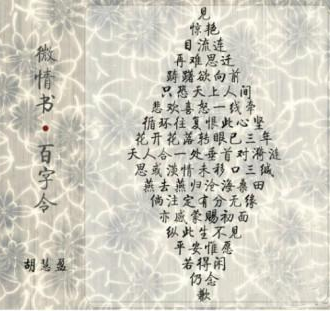 微情书•百字令
胡慧盈
见
惊艳
目流连
再难思迁
踌躇欲向前
只恐天上人间
悲欢喜怒一线牵
循环往复恨此心坚
花开花落转眼已三年
天人合一处垂首对漪涟
思或淡情未移口三缄
燕去燕归沧海桑田
倘注定有分无缘
亦感蒙赐初面
纵此生不见
平安惟愿
若得闲
仍念
歉